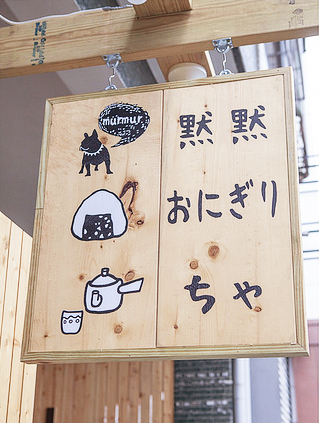 murmur
黙黙
おにぎり
ちゃ